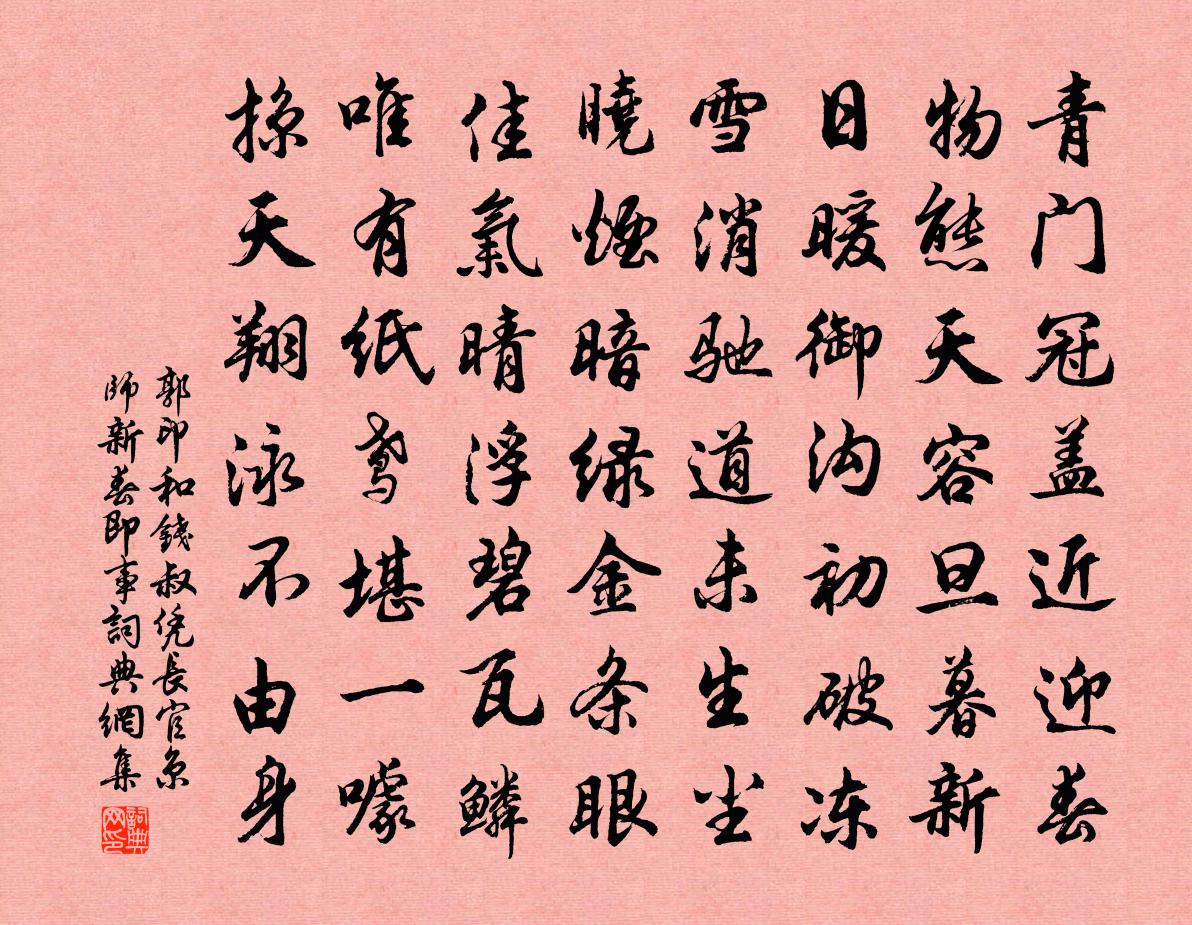 青门冠盖近迎春
物態天容旦暮新
日暖御沟初破冻
雪消驰道未生尘
曉煙暗绿金条眼
佳氣晴浮碧瓦鳞
唯有纸鸢堪一噱
掠天翔泳不由身
郭印和錢叔凭長官京
師新春即事詞典網集
詞典
网印